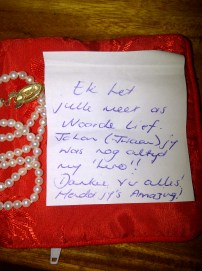 Ek het
julle meer as
Woorde lief.
Johan (Jnr) jy
was nog altyd
my "hero"!!
Dankie vir alles!
jy's Amazing!